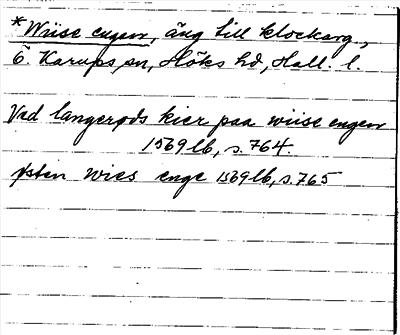 *Wiise engen, äng till klockarg.,
Ö. Karups sn, Höks hd, Hall. l.
Ved langerøds kier paa wiise engen
1569 lb, s. 764.
østen wies enge 1569 lb, s. 765